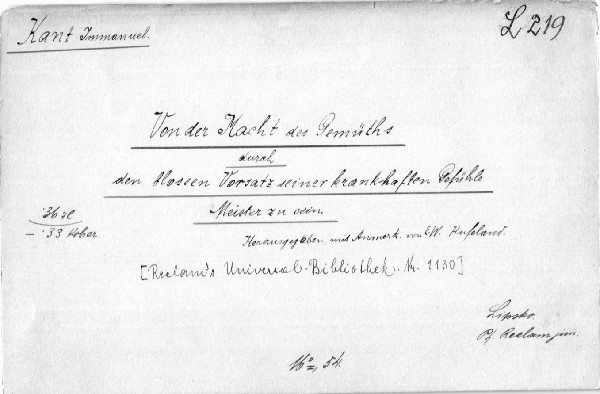 Kant Immanuel.
L 219
Von der Macht des Gemüths
durch
den blossen Vorsatz seiner krankhaften Gefühle
Meister zu sein.
Herausgegeben mit Anmerk. von C. W. Hufeland.
[Reclam's Universal-Bibliothek. Nr. 1130]
Lipsko.
Ph. Reclam jun.
16°, 54.